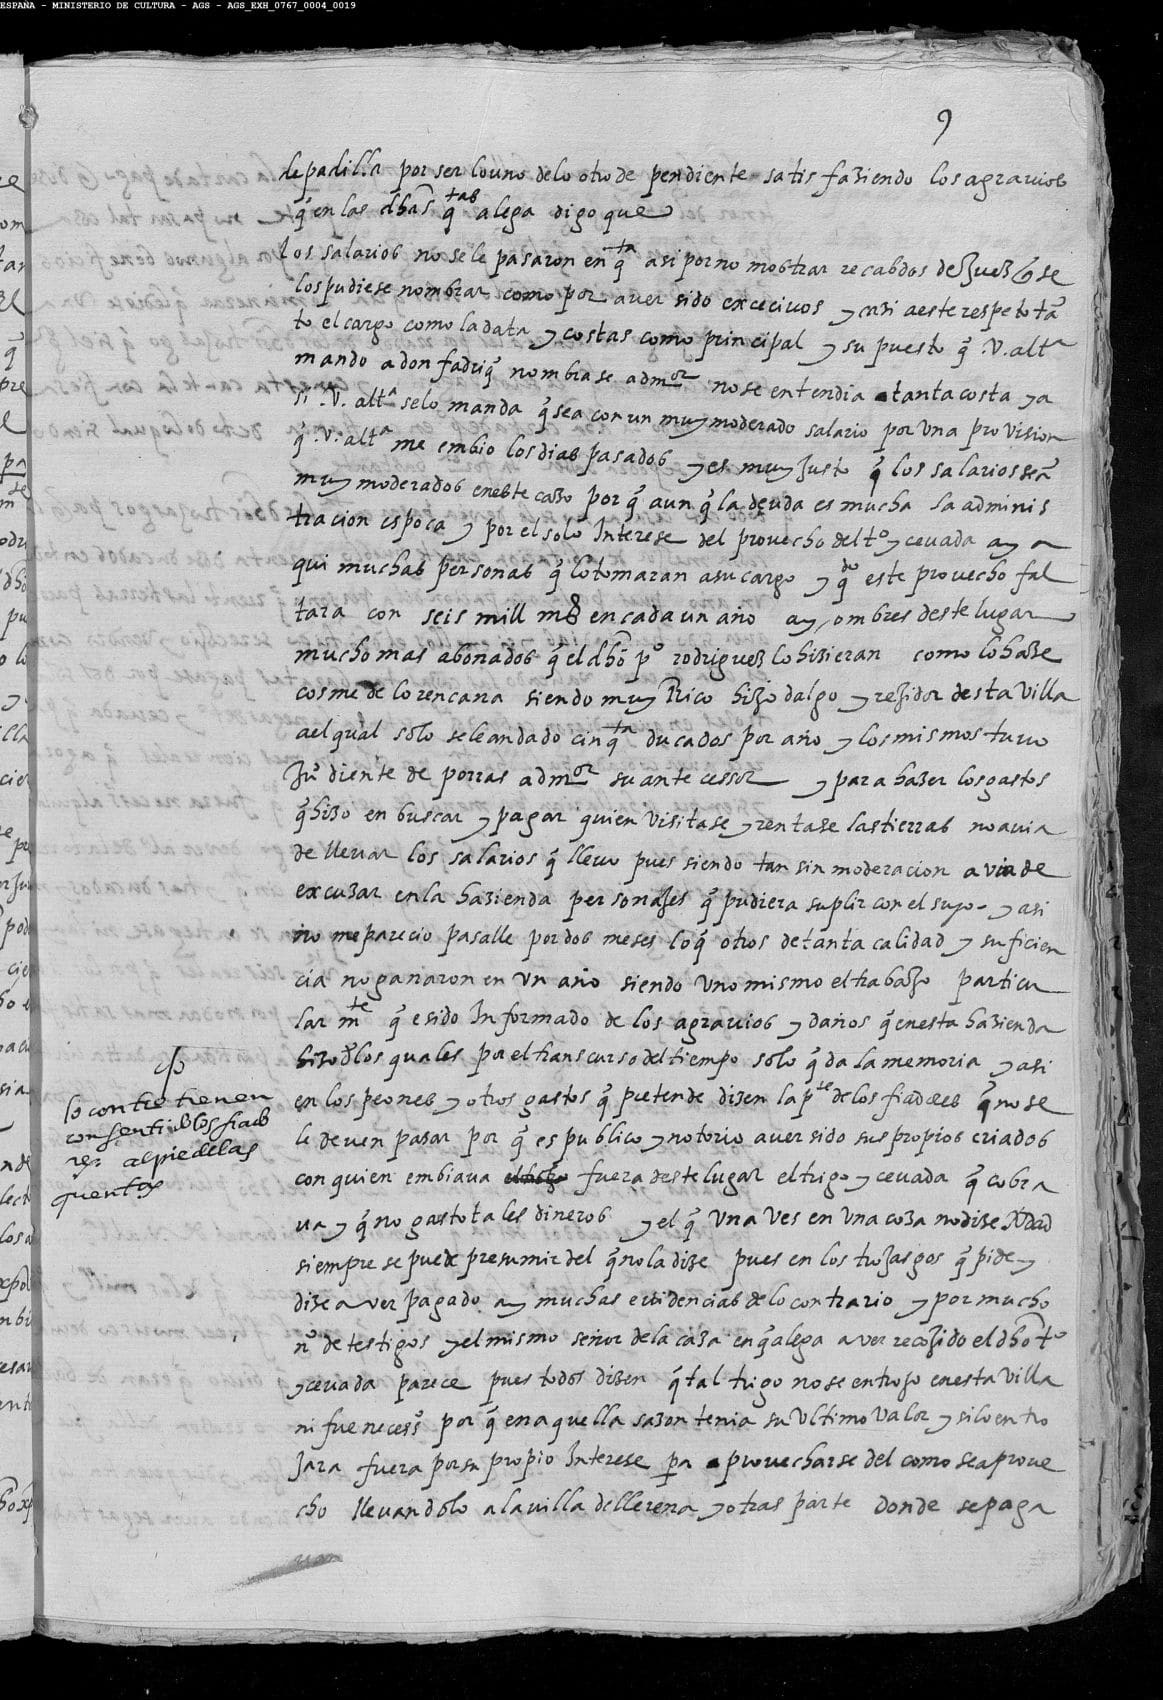 ESPAÑA - MINISTERIO DE CULTURA - AGS - AGS_EXH_0767_0004_0019
9
de padilla por ser lo uno de lo otro dependiente satisfaziendo los agravios
q̃ en las dhas q̃tas alega digo que
los salarios no se le pasaron en q̃ta asi por no mostrar recabdos de Juez q̃ se
los pudiese nombrar como por aver sido excecivos y casi a este respeto tã
to el cargo como la data y costas como principal y supuesto q̃ .V. altª
mando a don fadriq̃ nombrase admor no se entendia a tanta costa ya
si .V. altª se lo manda q̃ sea con un muy moderado salario por una provision
q̃ .V. altª me embio los dias pasados y es muy justo q̃ los salarios seã
muy moderados en este cazo por q̃ aun q̃ la deuda es mucha la adminis
tracion es poca y por el solo Interese del provecho del tº y cevada ay a
qui muchas personas q̃ lo tomaran a su cargo y q̃do este provecho fal
tara con seis mill mrs en cada un año ay ombres deste lugar
mucho mas abonados q̃ el dhõ pº rodriguez lo hizieran como lo haze
cosme de lorençana siendo muy Rico hijo dalgo y rejidor desta villa
a el qual solo se le an dado cinq̃ta ducados por año y los mismos tuvo
Juº diente de porras admor su antecessor y para hazer los gastos
q̃ hizo en buscar y pagar quien visitase y rentase las tierras no avia
de llevar los salarios q̃ llevo pues siendo tan sin moderacion avia de
excuzar en la hazienda personajes q̃ pudiera suplir con el suyo - y asi
no me parecio pasalle por dos meses lo q̃ otros de tanta calidad y suficien
cia no ganaron en un año siendo uno mismo el trabajo particu
lar mte q̃ e sido Informado de los agravios y daños q̃ en esta hazienda
hizo de los quales por el transcurso del tiempo solo q̃da la memoria y asi
en los peones y otros gastos q̃ pretende dizen la pte de los fiadores q̃ no se
le deven pasar por q̃ es publico y notorio aver sido sus propios criados
con quien embiava fuera deste lugar el trigo y cevada q̃ cobra
va y q̃ no gasto tales dineros y el q̃ una ves en una coza no dize Vdad
siempre se puede presumir del q̃ no la dize pues en los trojasgos q̃ pide y
dize aver pagado ay muchas evidencias de lo contrario y por mucho
nº de testigos y el mismo señor de la caza en q̃ alega aver recojido el dhõ tº
y cevada parece pues todos dizen q̃ tal trigo no se entrojo en esta villa
ni fue necesº por q̃ en aquella sazon tenia su ultimo valor y si lo entro
jara fuera por su propio Interese pa aprovecharse del como se aprove
cho llevandolo a la villa de llerena y otras parte donde se paga
van
lo contrº tienen
consentido los fiado
res al pie de las
quentas